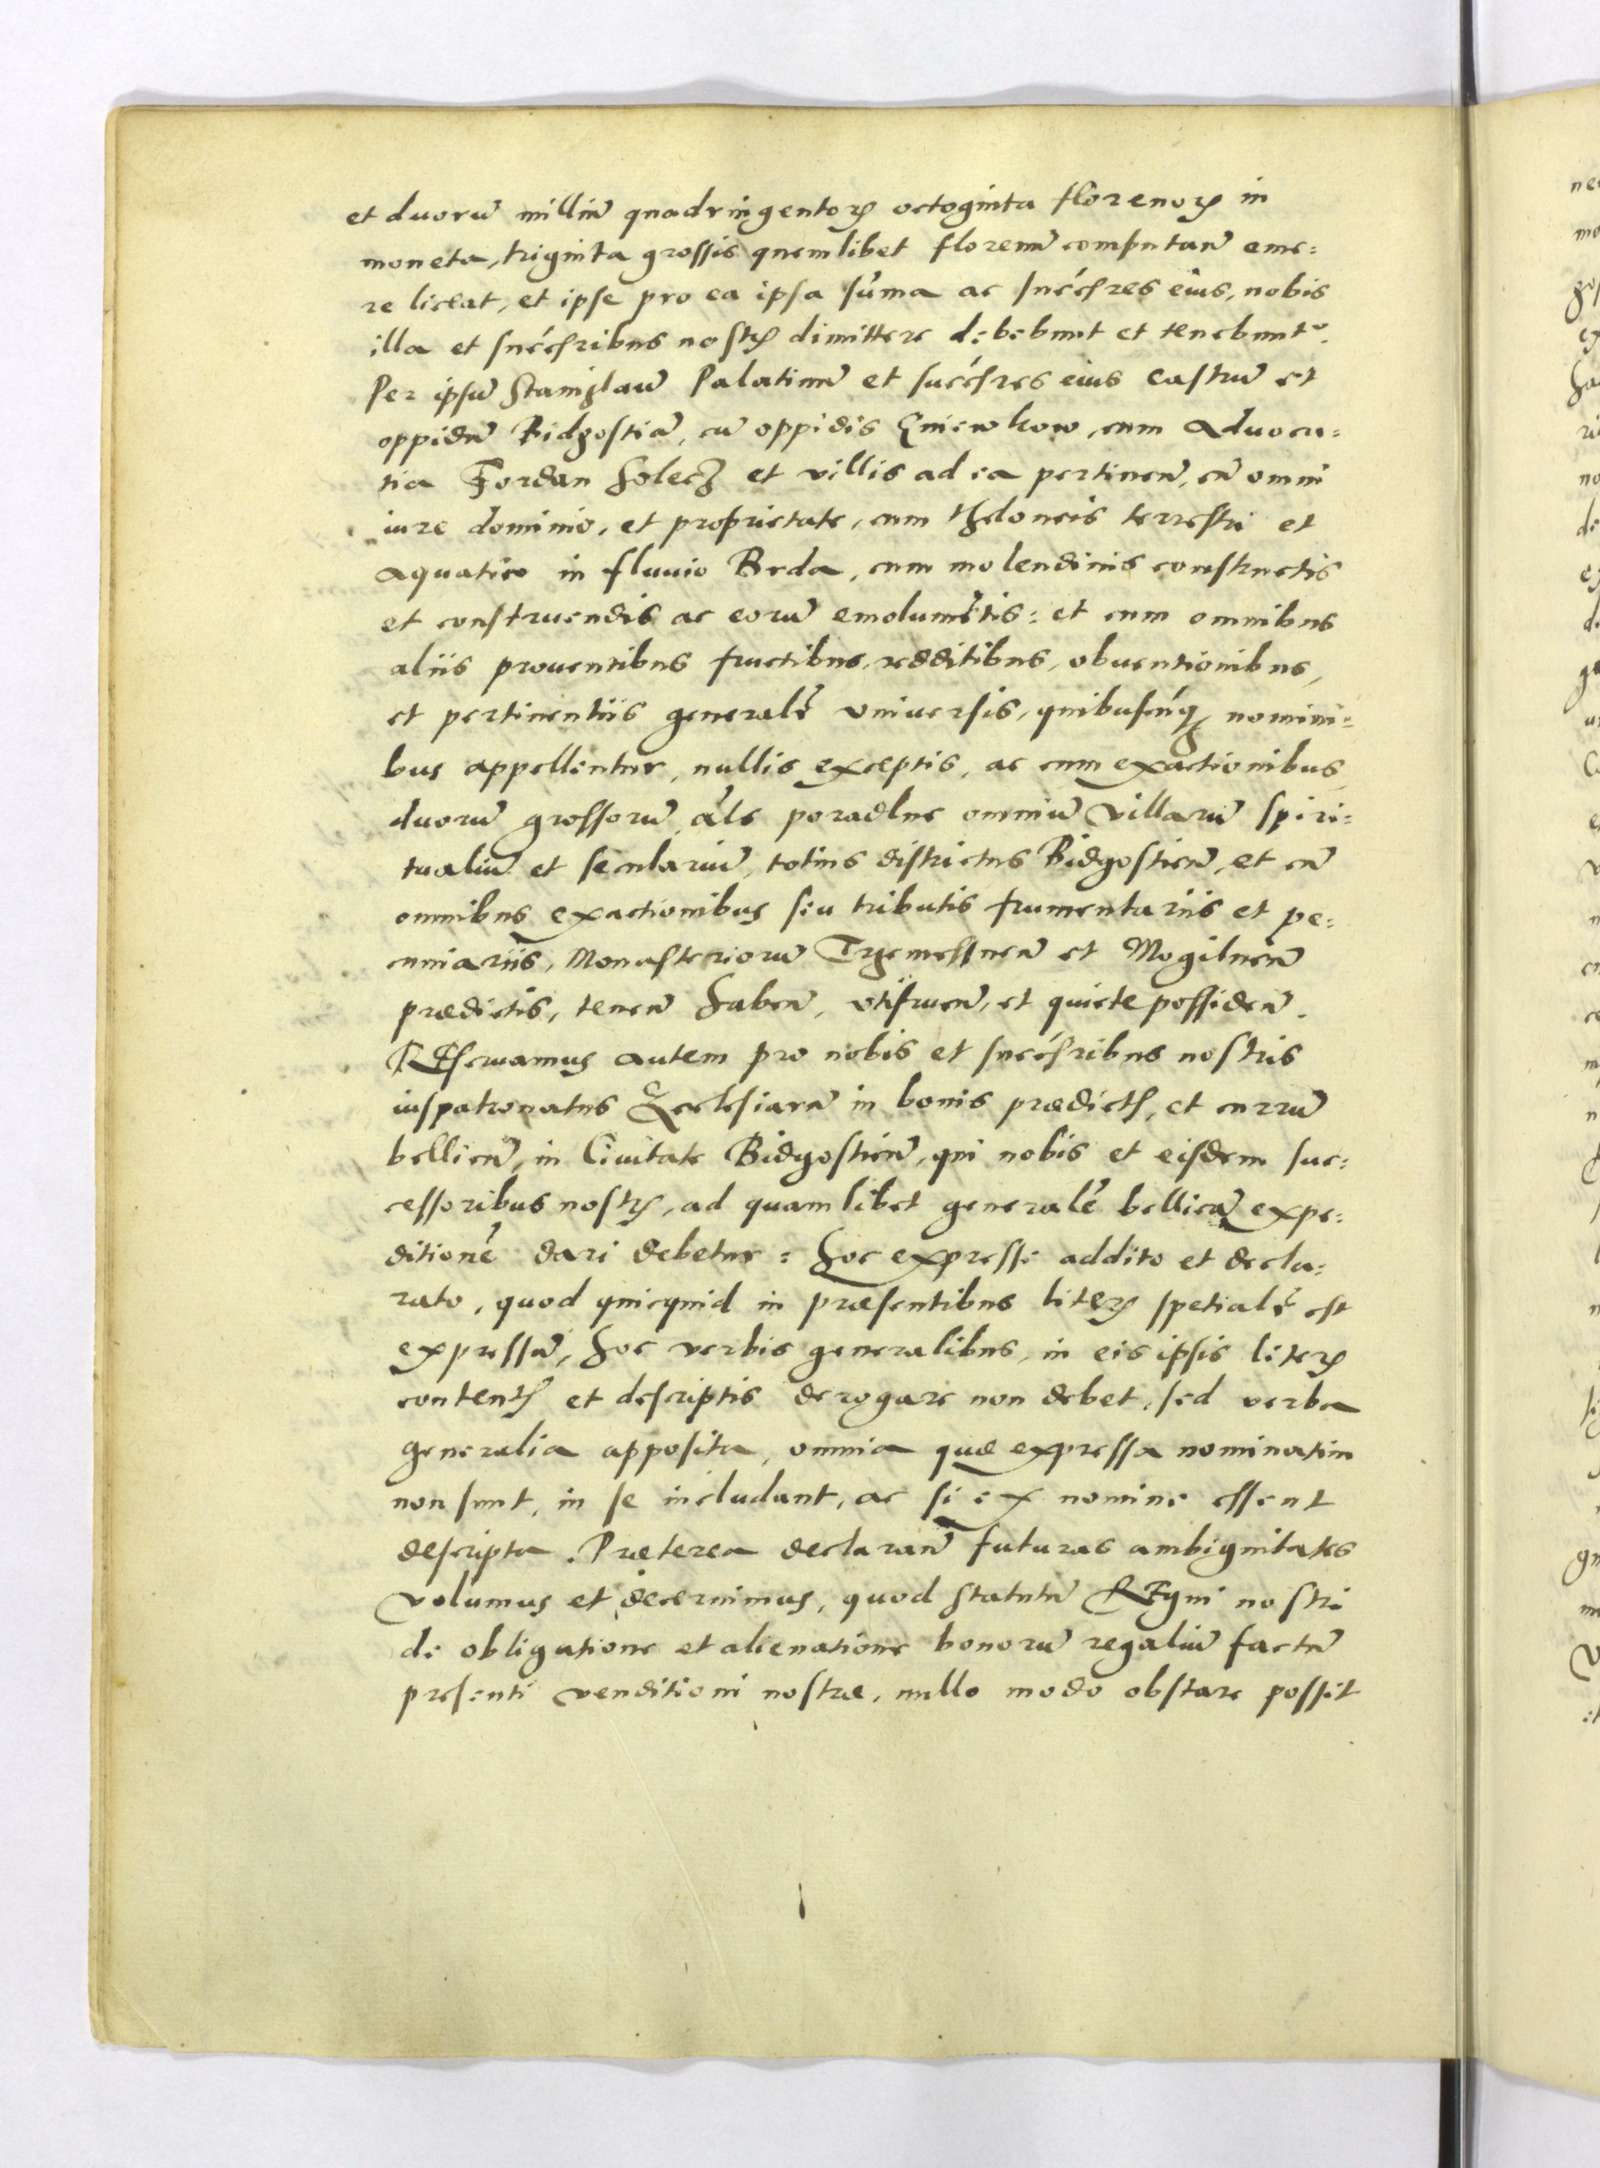 et duorū milliū quadringentoꝝ octoginta florenoꝝ in
moneta, triginta grossis quemlibet florenū computan̄ eme:
re liceat, et ipse pro ea ipsa sūma ac succ̄sres eius, nobis
illa et succ̄sribus nostrꝭ dimittere debebunt et tenebunt᷑.
Per ipsū Stanislaū Palatinū et succ̄sres eius castrū et
oppidū Bidgostiā, cū oppidis Gniewkow, cum aduoca:
tia Fordan Solecz et villis ad ea pertinen̄, cū omni
iure dominio, et proprietate, cum theloneis terrestri et
aquatico in fluuio Brda, cum molendinis constructis
et construendis ac eorū emolumētis: et cum omnibus
aliis prouentibus fructibus, redditibus, obuentionibus,
et pertinentiis generalr̄ vniuersis, quibuscūq nomini:
bus appellentur, nullis exceptis, ac cum exactionibus
duorū grossorū, al̄s poradlne omniū villarū spiri:
tualiū et seculariū, totius districtus Bidgostien̄, et cū
omnibus exactionibus seu tributis frumentariis et pe:
cuniariis, Monasteriorū Trzemessnen̄ et Mogilnen̄
prædictis, tenen̄ haben̄, vtifruen̄, et quiete possiden̄.
REseruamus autem pro nobis et succ̄sribus nostris
iuspatronatus Ecclesiarū in bonis prædictꝭ, et currū
bellicū, in Ciuitate Bidgostien̄, qui nobis et eisdem suc:
cessoribus nostrꝭ, ad quamlibet generalē bellicā expe:
ditionē dari debetur: hoc expresse addito et decla:
rato, quod quicquid in præsentibus literꝭ spetialr̄ est
expressū, hoc verbis generalibus, in eis ipsis literꝭ
contentꝭ et descriptis derogare non debet, sed verba
generalia apposita, omnia quæ expressa nominatim
non sunt, in se includant, ac si ex nomine essent
descripta. Præterea declaran̄ futuras ambiguitates
volumus et decernimus, quod statutū REgni nostri
de obligatione et alienatione bonorū regaliū factū
presenti venditioni nostræ, nullo modo obstare possit